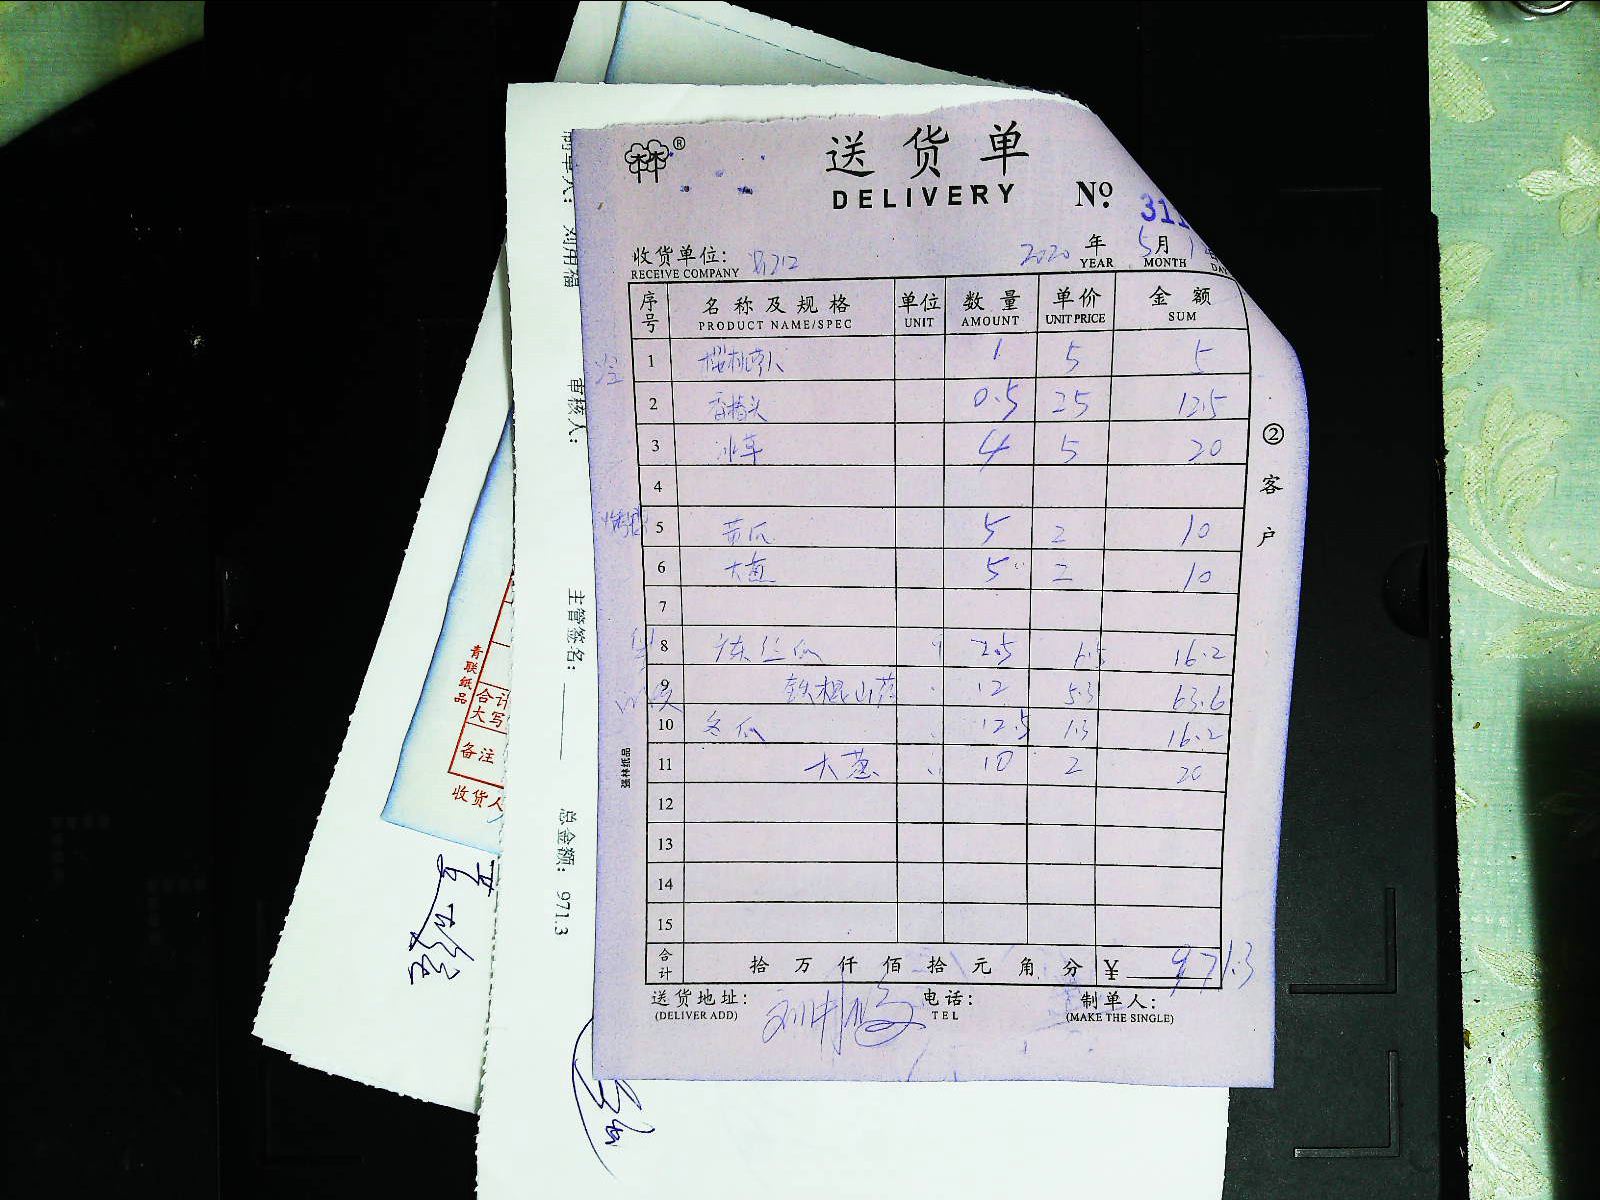 送货单
DELIVERY
№ 311
收货单位:
RECEIVE COMPANY
2020 年 5 月
YEAR MONTH DA
序号 名称及规格 单位 数量 单价 金额
PRODUCT NAME/SPEC UNIT AMOUNT UNIT PRICE SUM
1 樱桃萝卜 1 5 5
2 0.5 25 12.5
3 冰草 4 5 20
4
5 黄瓜 5 2 10
6 大葱 5 2 10
7
8 丝瓜 2.5 6.5 16.2
9 铁棍山药 12 5.3 63.6
10 冬瓜 12.5 1.3 16.2
11 大葱 10 2 20
12
13
14
15
合计 拾 万 仟 佰 拾 元 角 分 ¥ 971.3
送货地址: 电话: 制单人:
(DELIVER ADD) TEL (MAKE THE SINGLE)
② 客户
强林纸品
制单人: 刘用福
审核人:
主管签名:
总金额: 971.3
青联纸品
合计
大写
备注
收货人